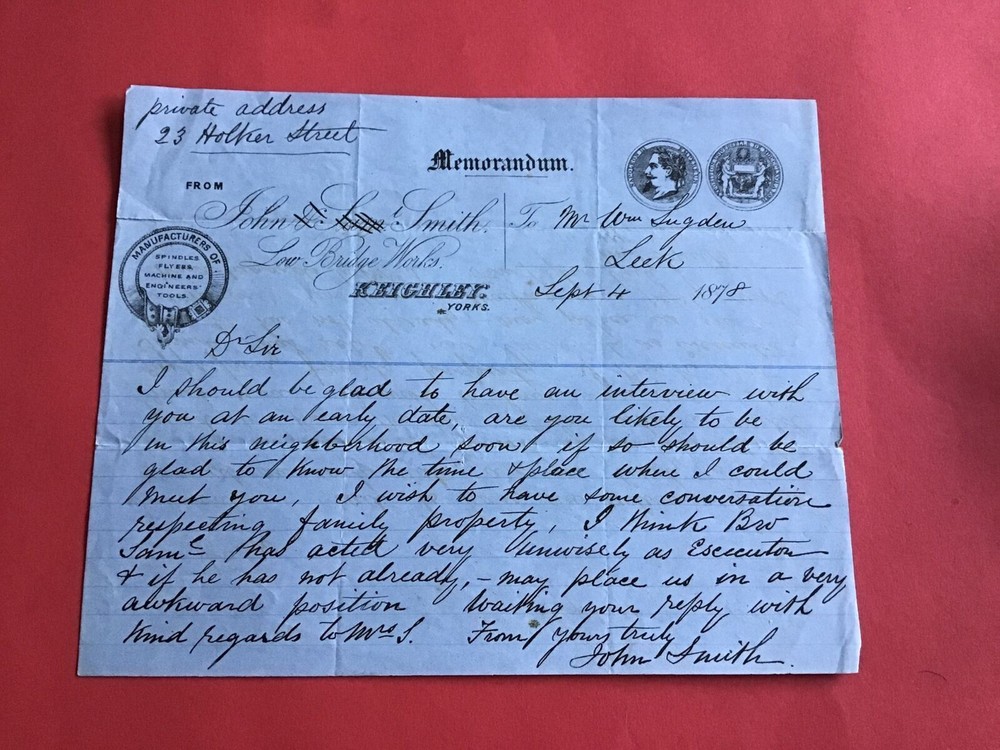 private address
23 Holker Street
Memorandum.
FROM
John & Saml Smith.
Low Bridge Works.
KEIGHLEY.
YORKS.
MANUFACTURERS OF
SPINDLES,
FLYERS,
MACHINE AND
ENGINEERS'
TOOLS.
To Mr Wm Sugden
Leek
Sept 4 1878
Dr Sir
I should be glad to have an interview with
you at an early date, are you likely to be
in this neighberhood soon if so should be
glad to know the time & place where I could
meet you, I wish to have some conversation
respecting family property, I think Bro
Saml has acted very unwisely as Executor
& if he has not already, - may place us in a very
awkward position Waiting your reply with
kind regards to Mrs S. From yours truly
John Smith.